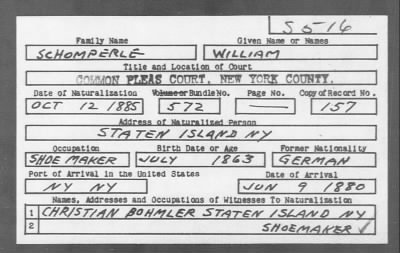 S516
Family Name Given Name or Names
SCHOMPERLE WILLIAM
Title and Location of Court
COMMON PLEAS COURT, NEW YORK COUNTY.
Date of Naturalization Volume or Bundle No. Page No. Copy of Record No.
OCT 12 1885 572 — 157
Address of Naturalized Person
STATEN ISLAND NY
Occupation Birth Date or Age Former Nationality
SHOE MAKER JULY 1863 GERMAN
Port of Arrival in the United States Date of Arrival
NY NY JUN 9 1880
Names, Addresses and Occupations of Witnesses To Naturalization
1 CHRISTIAN BOHMLER STATEN ISLAND NY
2 SHOEMAKER ✓